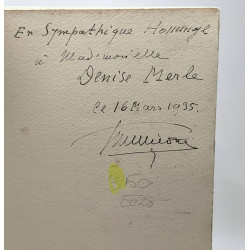 En Sympathique Hommage
à Mademoiselle
Denise Merle
Ce 16 Mars 1935.